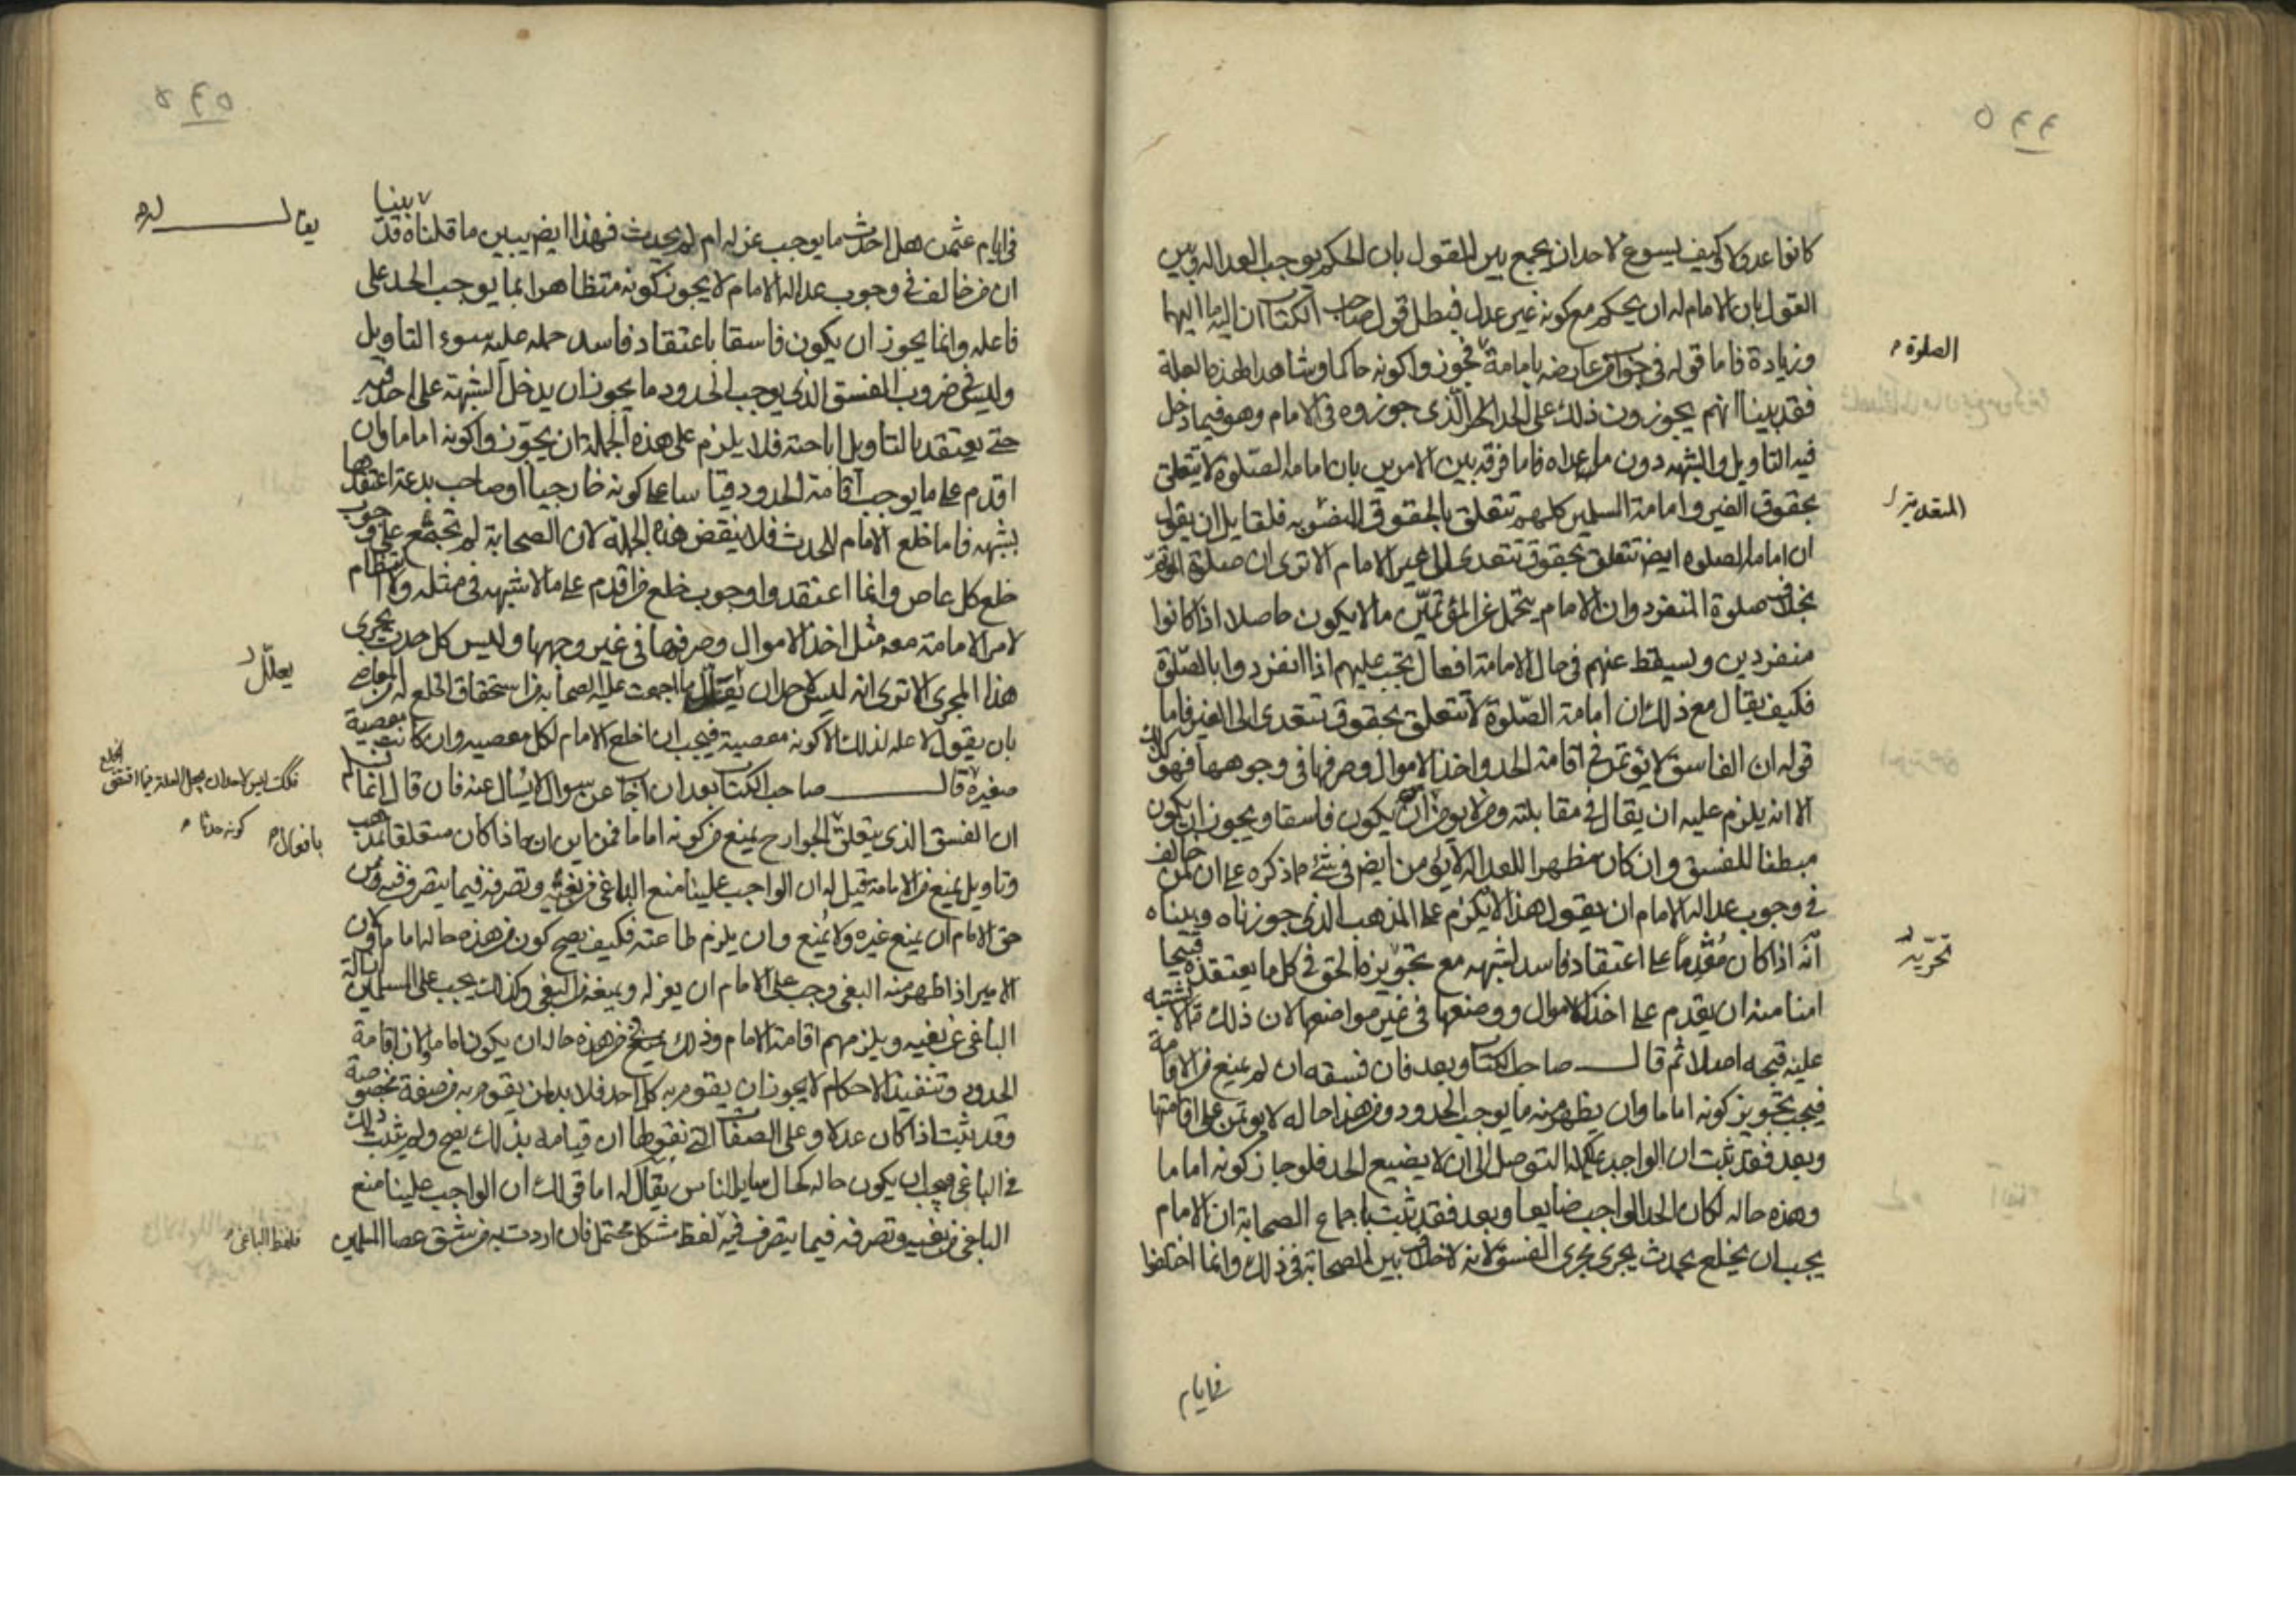 ٥٤٤
كانوا عدولا وكيف يسوغ لاحد ان يجمع بين القول بان الحكم يوجب العدالة وبين
القول بان الامام له ان يحكم مع كونه غير عدل فبطل قول صاحب الكتاب ان اليه ما اليهما
وزيادة فاما قوله في جواب من عارضه بامامة فجوزوا كونه حاكما وشاهدا لهذه العلة
الصلوة
فقد بينا انهم يجوزون ذلك على الحد الذي جوزوه في الامام وهو فيما دخل
فيه التاويل والشبهه دون ما عداه فاما فرقه بين الامرين بان امامة الصلوة لا تتعلق
بحقوق الغير وامامة المسلمين كلهم تتعلق بالحقوق فلقايل ان يقول
المتعدية
ان امامة الصلوة ايضا تتعلق بحقوق تتعدى الى غير الامام الا ترى ان صلوة المؤتم
بخلاف صلوة المنفرد وان الامام يتحمل عن المؤتمين ما لا يكون حاصلا اذا كانوا
منفردين ويسقط عنهم في حال الامامة افعال تجب عليهم اذا انفردوا بالصلوة
فكيف يقال مع ذلك ان امامة الصلوة لا تتعلق بحقوق تتعدى الى الغير فاما
قوله ان الفاسق لا يؤتمن في اقامة الحد واخذ الاموال وصرفها في وجوهها فهو كذلك
الا انه يلزم عليه ان يقال في مقابلته ومن لا يؤمن ان يكون فاسقا ويجوز ان يكون
مبطنا للفسق وان كان مظهرا للعدالة لا يؤمن ايضا في شئ مما ذكره على ان لمن خالف
في وجوب عدالة الامام ان يقول هذا لا يلزم على المذهب الذي جوزناه وبيناه
انه اذا كان مقدما على اعتقاد فاسد لشبهه مع تحويزه الحق في كل ما يعتقده قبيحا
تحريه
امنا منه ان يقدم على اخذ الاموال ووضعها في غير مواضعها لان ذلك مما لا يشتبه
عليه قبحه اصلا ثم قال صاحب الكتاب وبعد فان فسقه ان لم يمنع من الاقامة
فيجب تجويز كونه اماما وان يظهر منه ما يوجب الحدود ومن هذا حاله لا يؤتمن على اقامتها
وبعد فقد ثبت ان الواجب علينا التوصل الى ان لا يضيع الحد فلو جاز كونه اماما
وهذه حاله لكان الحد الواجب ضايعا وبعد فقد ثبت باجماع الصحابة ان الامام
يجب ان يخلع بحدث يجرى مجرى الفسق لانه لا خلاف بين الصحابة في ذلك وانما اختلفوا
في ايام
٥٤٥
في ايام عثمن هل احدث ما يوجب عزله ام لم يحدث فهذا ايضا يبين ما قلناه قد بينا
يقال له
ان من خالف في وجوب عدالة الامام لا يجوز كونه متظاهرا بما يوجب الحد على
فاعله وانما يجوز ان يكون فاسقا باعتقاد فاسد حمله عليه سوء التاويل
وليس في ضروب الفسق الذي يوجب الحدود ما يجوز ان يدخل الشبهة على احد فيه
حتى يعتقد بالتاويل اباحته فلا يلزم على هذه الجملة ان يجوزوا كونه اماما وان
اقدم على ما يوجب اقامة الحدود قياسا على كونه خارجيا او صاحب بدعة اعتقدها
بشبهه فاما خلع الامام للحدث فلا ينقض هذه الجملة لان الصحابة لم تجتمع على وجوب
خلع كل عاص وانما اعتقدوا وجوب خلع من اقدم على ما لا شبهه في مثله ولا انتظام
لامر الامامة معه مثل اخذ الاموال وصرفها في غير وجهها وليس كل حدث يجرى
هذا المجرى الا ترى انه ليس لاحد ان ما اجمعت عليه الصحابة من استحقاق الخلع له من المعاصي
يعلل
بان يقول لا علة لذلك الا كونه معصية فيجب ان اخلع الامام لكل معصيه وان كانت معصية
صغيرة قال صاحب الكتاب بعد ان اجاب عن سؤال لا يسال عنه فان قال انما ثبت لكم
فكذلك ليس لاحد ان يجعل العلة فيما اتفقوا الخلع
كونه حدثا
ان الفسق الذي يتعلق الجوارح يمنع من كونه اماما فمن اين انه اذا كان متعلقا بمذهب
بافعال
وتاويل يمنع من الامامة قيل له ان الواجب علينا منع الباغي من بغيه وتصرفه فيما يتصرف فيه ومن
حق الامام ان يمنع غيره ولا يُمنع وان يلزم طاعته فكيف يصح كون من هذه حاله اماما ولان
الامير اذا ظهر منه البغي وجب على الامام ان يعزله ويمنعه من البغي وكذلك يجب على المسلمين ازالة
الباغي عن بغيه ويلزمهم اقامة الامام وذلك يمنع من هذه حاله ان يكون اماما ولان اقامة
الحدود وتنفيذ الاحكام لا يجوز ان يقوم به كل احد فلا بد لمن يقوم به من صفة مخصوصة
وقد ثبت اذا كان عدلا وعلى الصفات التي نقولها ان قيامه بذلك يصح ولم يثبت ذلك
في الباغي فيجب ان يكون حاله كحال ساير الناس يقال له اما قولك ان الواجب علينا منع
الباغي من بغيه وتصرفه فيما يتصرف فيه لفظ مشكل محتمل فان اردت به من شق عصا المسلمين
فلفظ الباغي